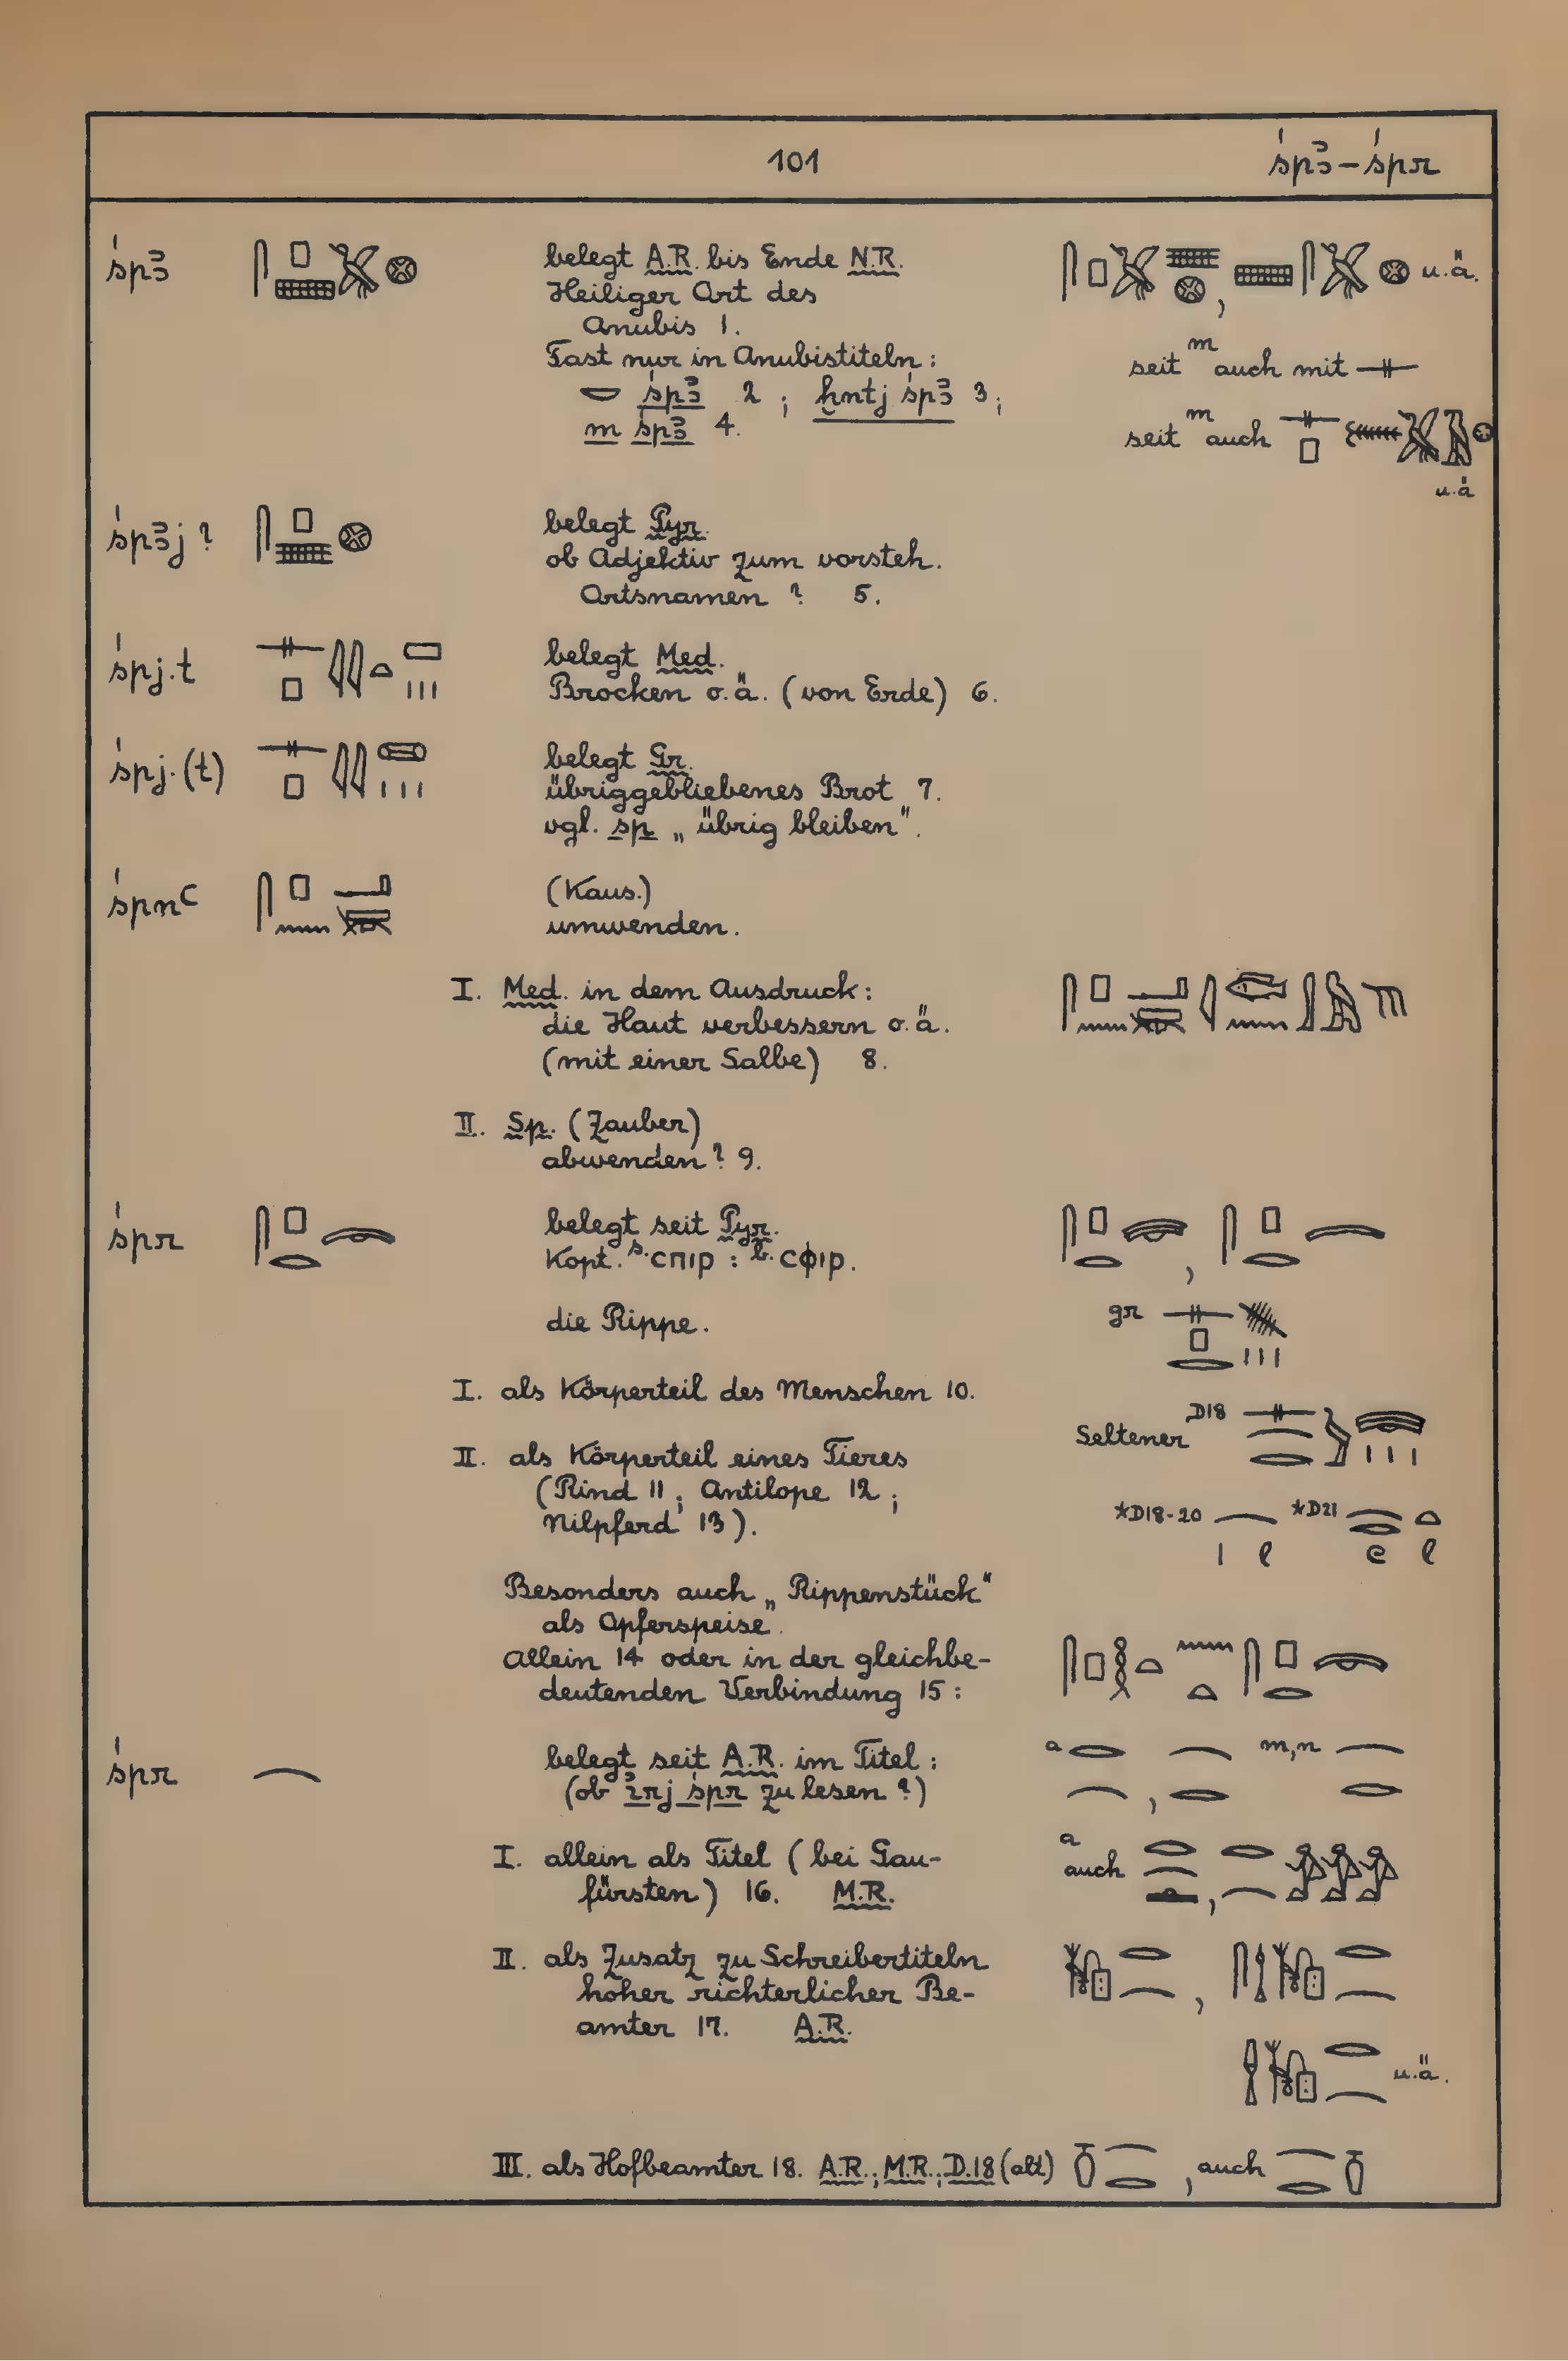 101
śpꜣ – śpr
śpꜣ
belegt A.R. bis Ende N.R.
Heiliger Ort des
Anubis 1.
Fast nur in Anubistiteln:
śpꜣ 2; ḫntj śpꜣ 3;
m śpꜣ 4.
u.ä.
seit m auch mit
seit m auch
u.ä
śpꜣj ?
belegt Pyr.
ob Adjektiv zum vorsteh.
Ortsnamen ? 5.
śpj.t
belegt Med.
Brocken o.ä. (von Erde) 6.
śpj.(t)
belegt Gr.
übriggebliebenes Brot 7.
vgl. sp „übrig bleiben".
śpnꜥ
(Kaus.)
umwenden.
I. Med. in dem Ausdruck:
die Haut verbessern o.ä.
(mit einer Salbe) 8.
II. Sp. (Zauber)
abwenden? 9.
śpr
belegt seit Pyr.
Kopt. s. ⲥⲡⲓⲣ : b. ⲥⲫⲓⲣ.
die Rippe.
gr
I. als Körperteil des Menschen 10.
Seltener D18
II. als Körperteil eines Tieres
(Rind 11; Antilope 12;
Nilpferd 13).
*D18-20 *D21
Besonders auch „Rippenstück"
als Opferspeise.
Allein 14 oder in der gleichbe-
deutenden Verbindung 15:
śpr
belegt seit A.R. im Titel:
(ob ı͗rj śpr zu lesen?)
a m,n
I. allein als Titel (bei Gau-
fürsten) 16. M.R.
a
auch
II. als Zusatz zu Schreibertiteln
hoher richterlicher Be-
amter 17. A.R.
u.ä.
III. als Hofbeamter 18. A.R.; M.R.; D.18 (alt) , auch